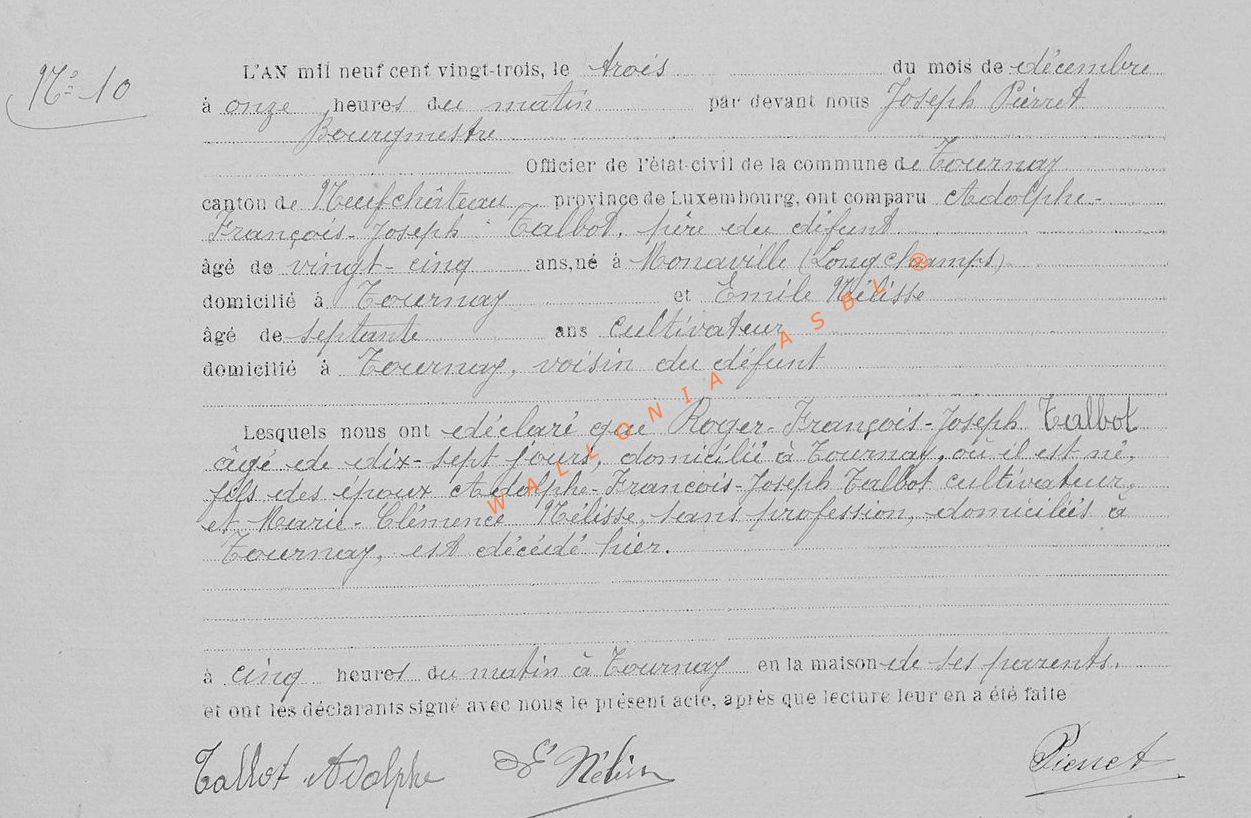 N° 10
L'AN mil neuf cent vingt-trois, le trois du mois de décembre
à onze heures du matin par devant nous Joseph Pierret
Bourgmestre
Officier de l'état-civil de la commune de Tournay
canton de Neufchâteau province de Luxembourg, ont comparu Adolphe-
François-Joseph Talbot, père du défunt
âgé de vingt-cinq ans, né à Monaville (Longchamps)
domicilié à Tournay et Emile Nélisse
âgé de septante ans cultivateur
domicilié à Tournay, voisin du défunt
Lesquels nous ont déclaré que Roger-François-Joseph Talbot
âgé de dix-sept jours, domicilié à Tournay, où il est né,
fils des époux Adolphe-François-Joseph Talbot cultivateur,
et Marie-Clémence Nélisse, sans profession, domiciliés à
Tournay, est décédé hier.
à cinq heures du matin à Tournay en la maison de ses parents.
et ont les déclarants signé avec nous le présent acte, après que lecture leur en a été faite
Talbot Adolphe Nélisse Pierret
WALLONIA ASBL ®